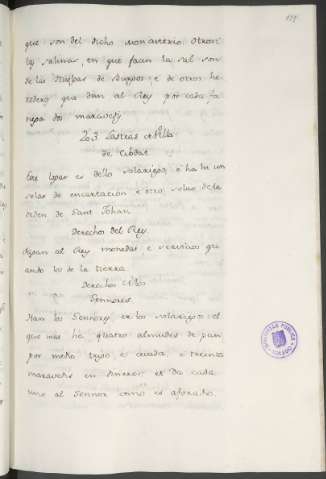 que son del dicho Monasterio. Otrosi
las salinas, en que facen la sal son
de las de Burgos, e de otros he
rederos que dan al Rey por cada
dos maravedis
203. Lastras
de
Este logar es dello solariego, e ha hi un
solar de encartacion e otro solar de la
orden de Sant Johan.
Derechos del Rey
Dan al Rey monedas e servicios qu
ando los de la tierra
Derechos de los
Sennores
Han los Sennores en los solariegos el
que mas ha quatro almudes de pan
por medio trigo e cevada, e treinta
maravedis en dinero; et da cada
uno al Sennor como es aforado.